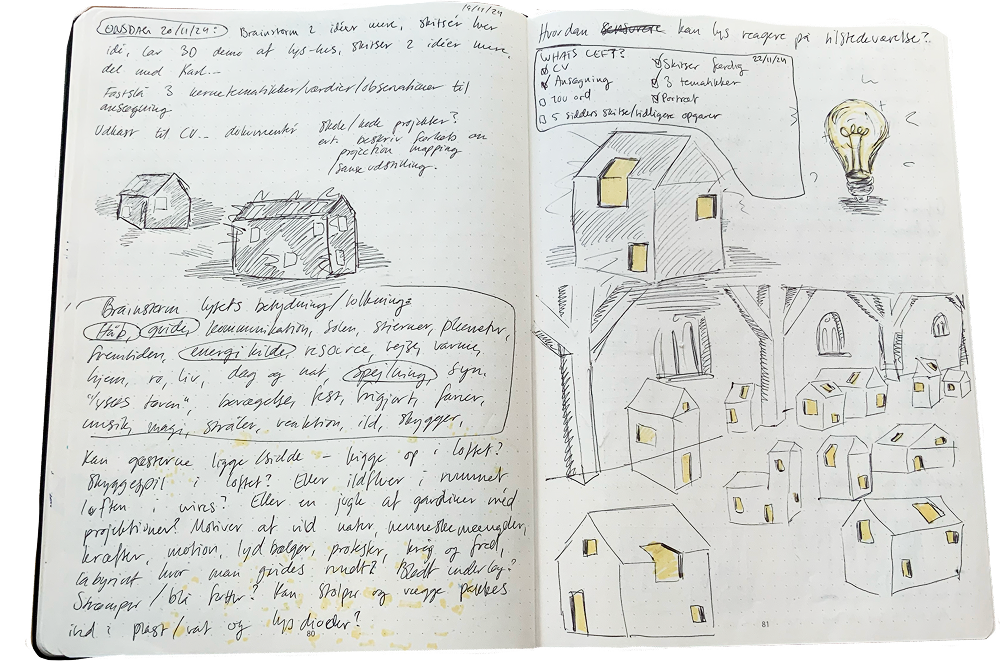 19/11/24
ONSDAG 20/11/24: Brainstorm 2 idéer mere, skitsér hver
idé, lav 3D demo af lys-hus, skitser 2 idéer mere,
del med Karl...
Fastslå 3 kernetematikker/værdier/observationer til
ansøgning
Udkast til CV... dokumentér skole/andre projekter?
evt. beskriv forløb om
projection mapping
/sanseudstilling.
Brainstorm lysets betydning/tolkning:
Håb, guide, kommunikation, solen, stjerner, planeter,
fremtiden, energikilde, resource, vejr, varme,
hjem, ro, liv, dag og nat, spejlning, syn,
bevægelse, fest, frigjort, farver,
musik, magi, stråler, reaktion, ild, skygger,
Kan gæsterne ligge/sidde - kigge op i loftet?
Skyggespil i loftet? Eller ildfluer i rummet
loften i wires? Eller en jugle af gardiner med
projektioner? Motiver af vild natur, menneskemængder,
kræfter, motion, lydbølger, protester, krig og fred,
labyrint hvor man guides rundt? Blødt underlag?
Strømper/blå futter? Kan stolper og vægge pakkes
ind i plast/vat og lysdioder?
80
Hvordan kan lys reagere på tilstedeværelse?
WHAT'S LEFT?? 22/11/24
CV
Skitser færdig
Ansøgning
3 tematikker
200 ord
Portræt
5 siders skitse/tidligere opgaver
?
81